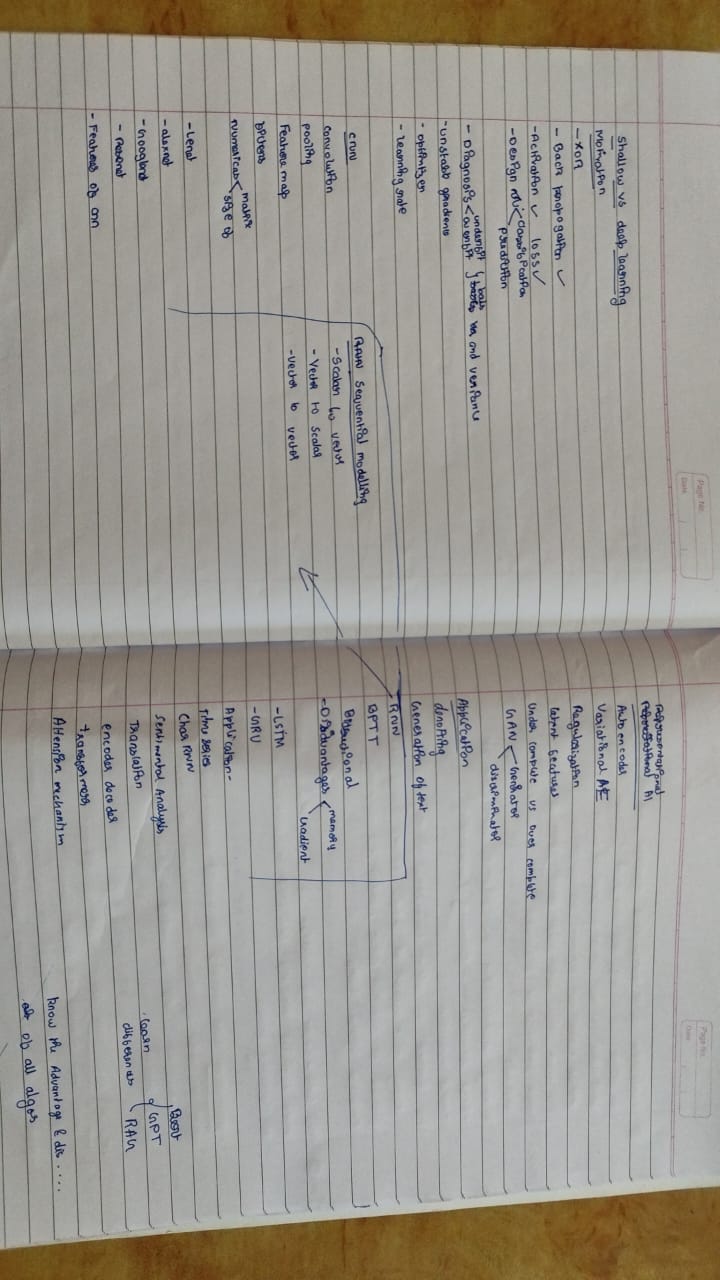 Page No.
Date
Shallow vs deep learning
Motivation
- XOR
- Back propogation ✓
- Activation ✓ loss ✓
- Design classification
prediction
- Diagnosis underfit
overfit and variance
- unstable gradients
- optimizer
- learning rate
CNN
convolution
pooling
Feature map
filters
Numericals matrix
size of
- Lenet
- alexnet
- Googlenet
- Resnet
- Features of cnn
RNN Sequential modelling
- Scalar to vector
- Vector to Scalar
- vector to vector
Page No.
Date
Representational
AI
Auto encoder
Variational AE
Regularization
latent features
Under complete vs over complete
GAN Generator
discriminator
Application
denoising
Generation of text
- RNN
BPTT
Bidirectional
- Disadvantages memory
Gradient
- LSTM
- GRU
Application -
Time series
Char RNN
Sentimental Analysis
Translation
encoder decoder
transformers
Attension mechanism
learn
differences
Bert
GPT
RAG
Know the Advantage & dis....
of all algos